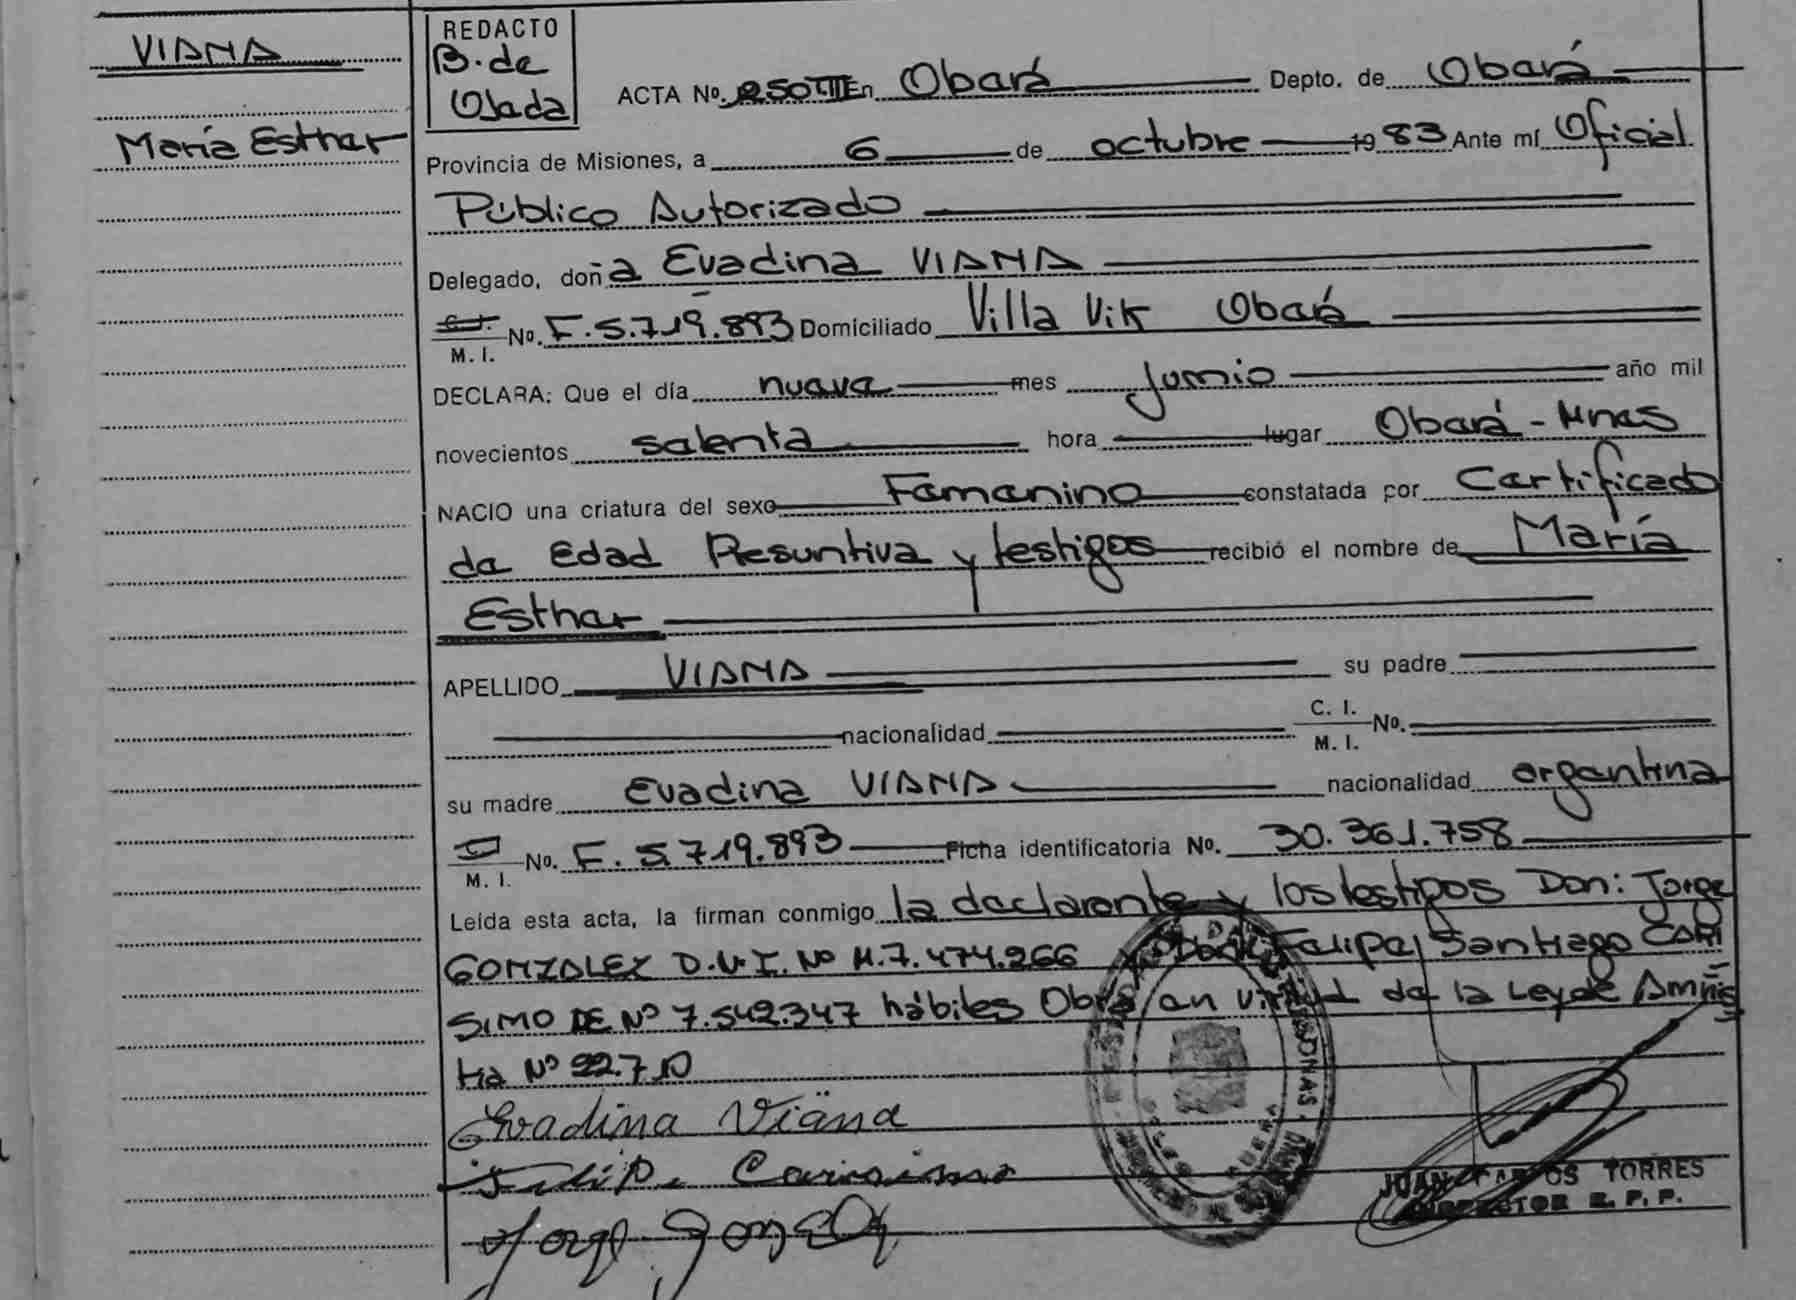 VIANA
María Esther
REDACTO
B. de
Ojeda
ACTA No. 250 TIII En Oberá Depto. de Oberá
Provincia de Misiones, a 6 de octubre 1983 Ante mí Oficial
Público Autorizado
Delegado, doña Evedina VIANA
C. I. M. I. No. F. 5.719.893 Domiciliado Villa Vik Oberá
DECLARA: Que el día nueve mes Junio año mil
novecientos setenta hora lugar Oberá - Mnes
NACIO una criatura del sexo Femenino constatada por Certificado
de Edad Presuntiva y testigos recibió el nombre de María
Esther
APELLIDO VIANA su padre
nacionalidad C. I. M. I. No.
su madre Evedina VIANA nacionalidad argentina
M. I. No. F. 5.719.893 Ficha identificatoria No. 30.361.758
Leída esta acta, la firman conmigo la declarante y los testigos Don: Jorge
GONZALEZ D.N.I. No M.7.474.266 y Don: Felipe Santiago CARI
SIMO DE No 7.542.347 hábiles Obra en virtud de la Ley de Amnis
tia No 22.710
Evadina Viana
Felipe Carissimo
Jorge Gonzalez
JUAN CARLOS TORRES
INSPECTOR R. P. P.